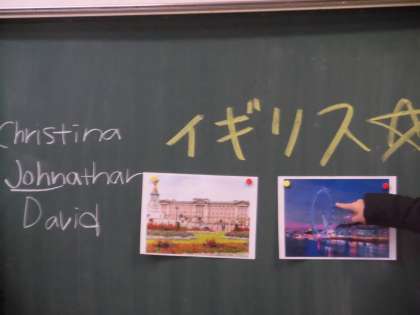 Christina
Johnathan
David
イギリス☆